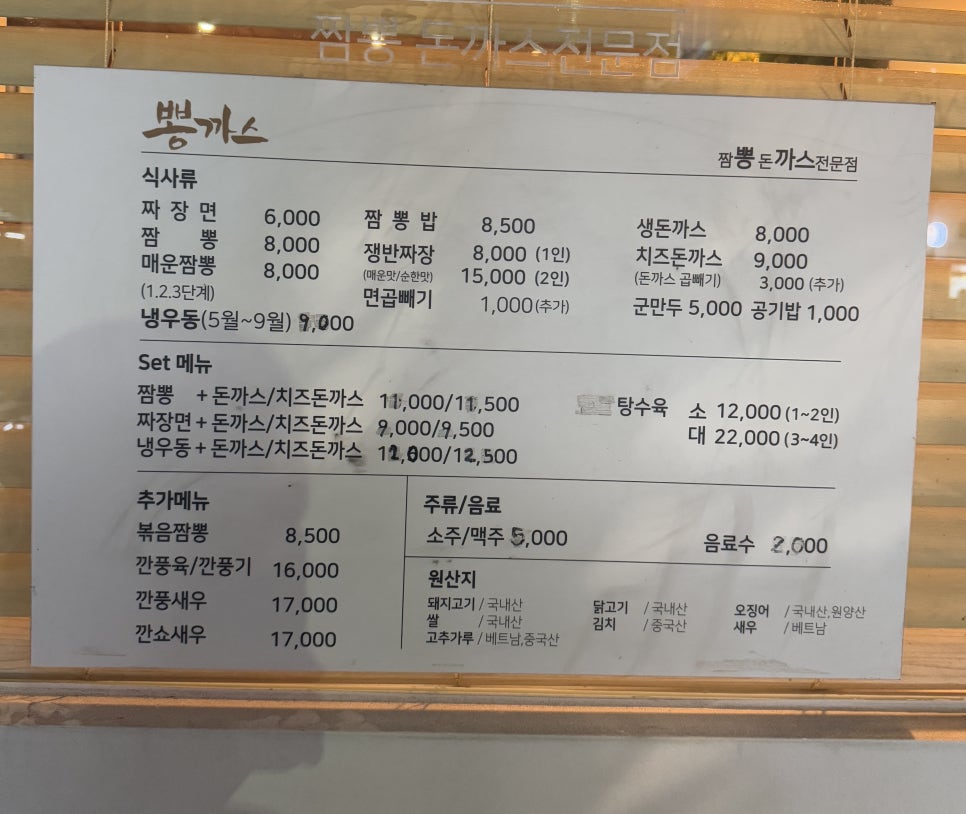 짬뽕 돈까스전문점
뽕까스
짬뽕돈까스전문점
식사류
짜장면 6,000
짬뽕 8,000
매운짬뽕 8,000
(1.2.3단계)
냉우동(5월~9월) 9,000
짬뽕밥 8,500
쟁반짜장 8,000 (1인)
(매운맛/순한맛) 15,000 (2인)
면곱빼기 1,000(추가)
생돈까스 8,000
치즈돈까스 9,000
(돈까스 곱빼기) 3,000 (추가)
군만두 5,000 공기밥 1,000
Set 메뉴
짬뽕 + 돈까스/치즈돈까스 11,000/11,500
짜장면 + 돈까스/치즈돈까스 9,000/9,500
냉우동 + 돈까스/치즈돈까스 12,000/12,500
탕수육 소 12,000 (1~2인)
대 22,000 (3~4인)
추가메뉴
볶음짬뽕 8,500
깐풍육/깐풍기 16,000
깐풍새우 17,000
깐쇼새우 17,000
주류/음료
소주/맥주 5,000 음료수 2,000
원산지
돼지고기 / 국내산 닭고기 / 국내산 오징어 / 국내산,원양산
쌀 / 국내산 김치 / 중국산 새우 / 베트남
고추가루 / 베트남,중국산